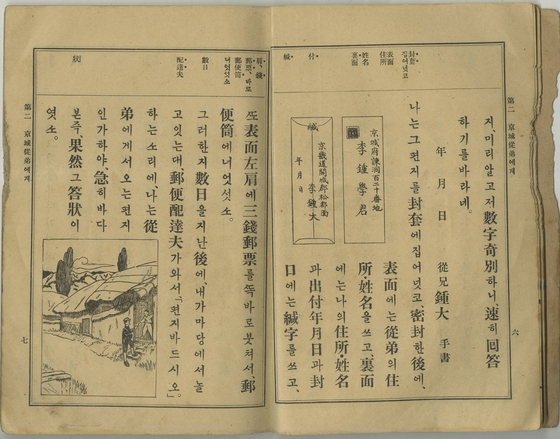 封套
집어넛고
表面
住所
姓名
裏面
付
緘
第二 京城從弟에게
六
지、미리알고저數字奇別하니、速히回答
하기를바라네。
年 月 日 從兄 鍾大 手書
나는그편지를封套에집어넛고、密封한後에、
表面에는從弟의住
所姓名을쓰고、裏面
에는나의住所、姓名
과出付年月日과封
口에는緘字를쓰고、
京城府諫洞百二十番地
李鍾學君
緘
京畿道開城郡松都面
李鍾大
年 月 日
肩、錢
郵票、바로
郵便筒
너엇싯소
數日
配達夫
狀
第二 京城從弟에게
七
또表面左肩에三錢郵票를똑바로붓처서、郵
便筒에너엇싯소。
그러한지數日을지난後에、내가마당에서놀
고잇는대郵便配達夫가와서、「편지바드시오。」
하는소리에、나는從
弟에게서오는편지
인가하야、急히바다
본즉、果然그答狀이
엿소。